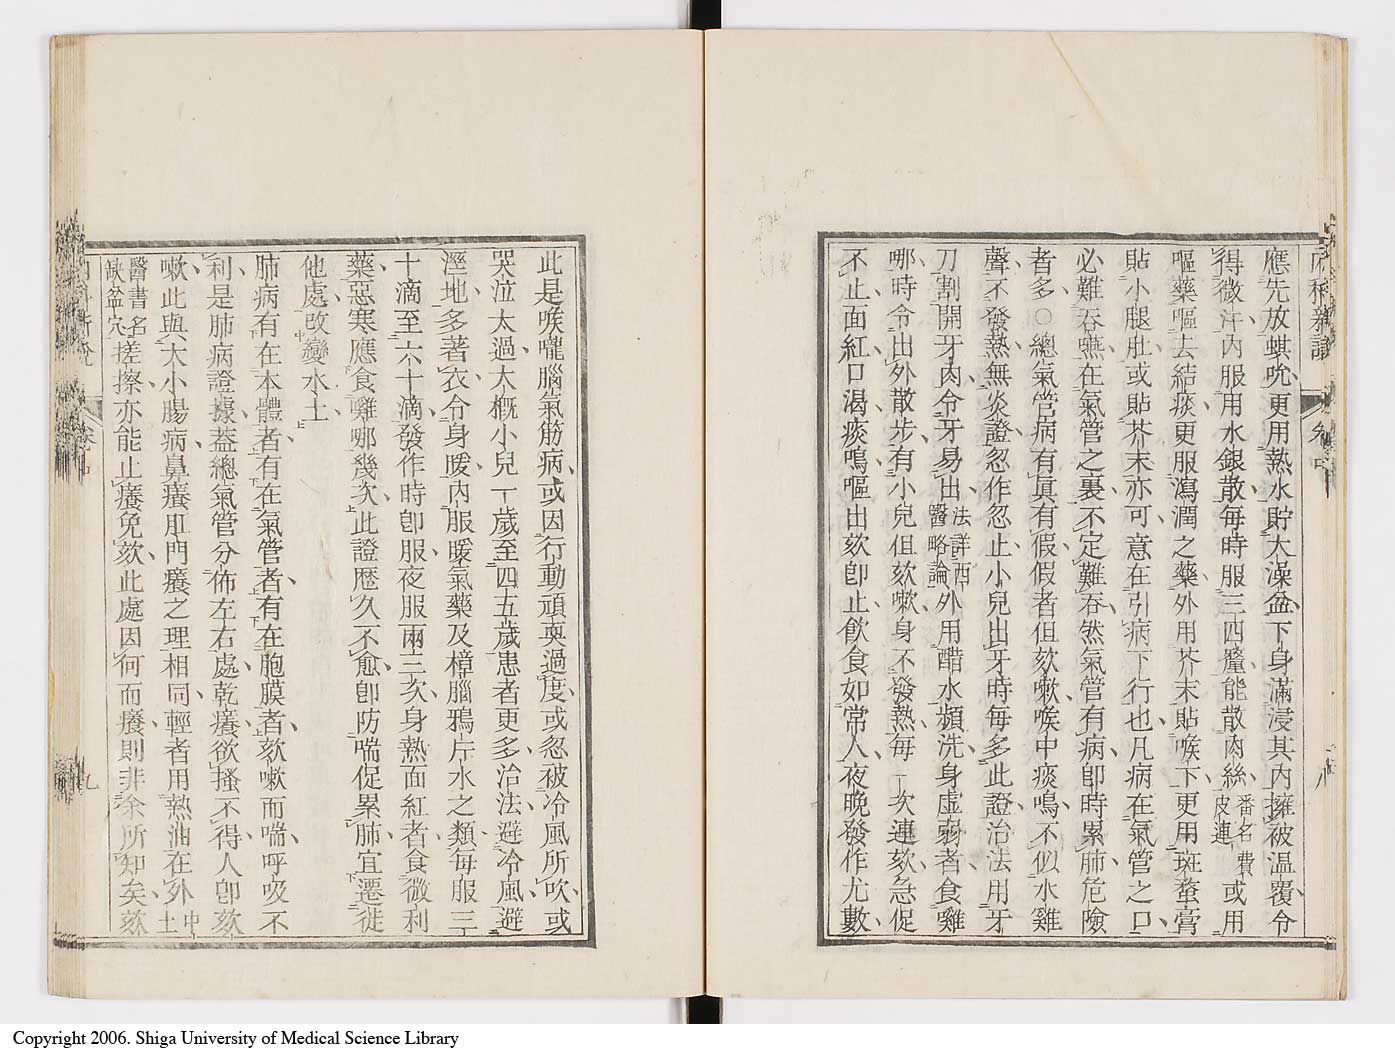 內科新說
卷中
八
應先放蜞吮更用熱水貯大澡盆下身滿浸其內擁被溫覆令
得微汗內服用水銀散每時服三四釐能散肉絲番名費皮連或用
嘔藥嘔去結痰更服瀉潤之藥外用芥末貼喉下更用斑蝥膏
貼小腿肚或貼芥末亦可意在引病下行也凡病在氣管之口
必難吞嚥在氣管之裏不定難吞然氣管有病卽時累肺危險
者多○總氣管病有眞有假假者但欬嗽喉中痰鳴不似水雞
聲不發熱無炎證忽作忽止小兒出牙時每多此證治法用牙
刀割開牙肉令牙易出法詳西醫略論外用醋水頻洗身虛弱者食雞
哪時令出外散步有小兒但欬嗽身不發熱每一次連欬急促
不止面紅口渴痰鳴嘔出欬卽止飲食如常人夜晚發作尤數
此是喉嚨腦氣筋病或因行動頑耍過度或忽被冷風所吹或
哭泣太過大概小兒一歲至四五歲患者更多治法避冷風避
溼地多著衣令身暖內服暖氣藥及樟腦鴉片水之類每服三
十滴至六十滴發作時卽服夜服兩三次身熱面紅者食微利
藥惡寒應食雞哪幾次此證歷久不愈卽防喘促累肺宜遷徙
他處改變水土
肺病有在本體者有在氣管者有在胞膜者欬嗽而喘呼吸不
利是肺病證據葢總氣管分佈左右處乾癢欲搔不得人卽欬
嗽此與大小腸病鼻癢肛門癢之理相同輕者用熱油在外土
醫書名缺盆穴搓擦亦能止癢免欬此處因何而癢則非余所知矣欬
內科新說
卷中
九
Copyright 2006. Shiga University of Medical Science Library